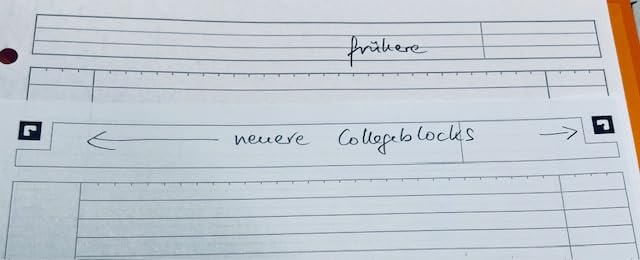 frühere
← neuere Collegeblocks →